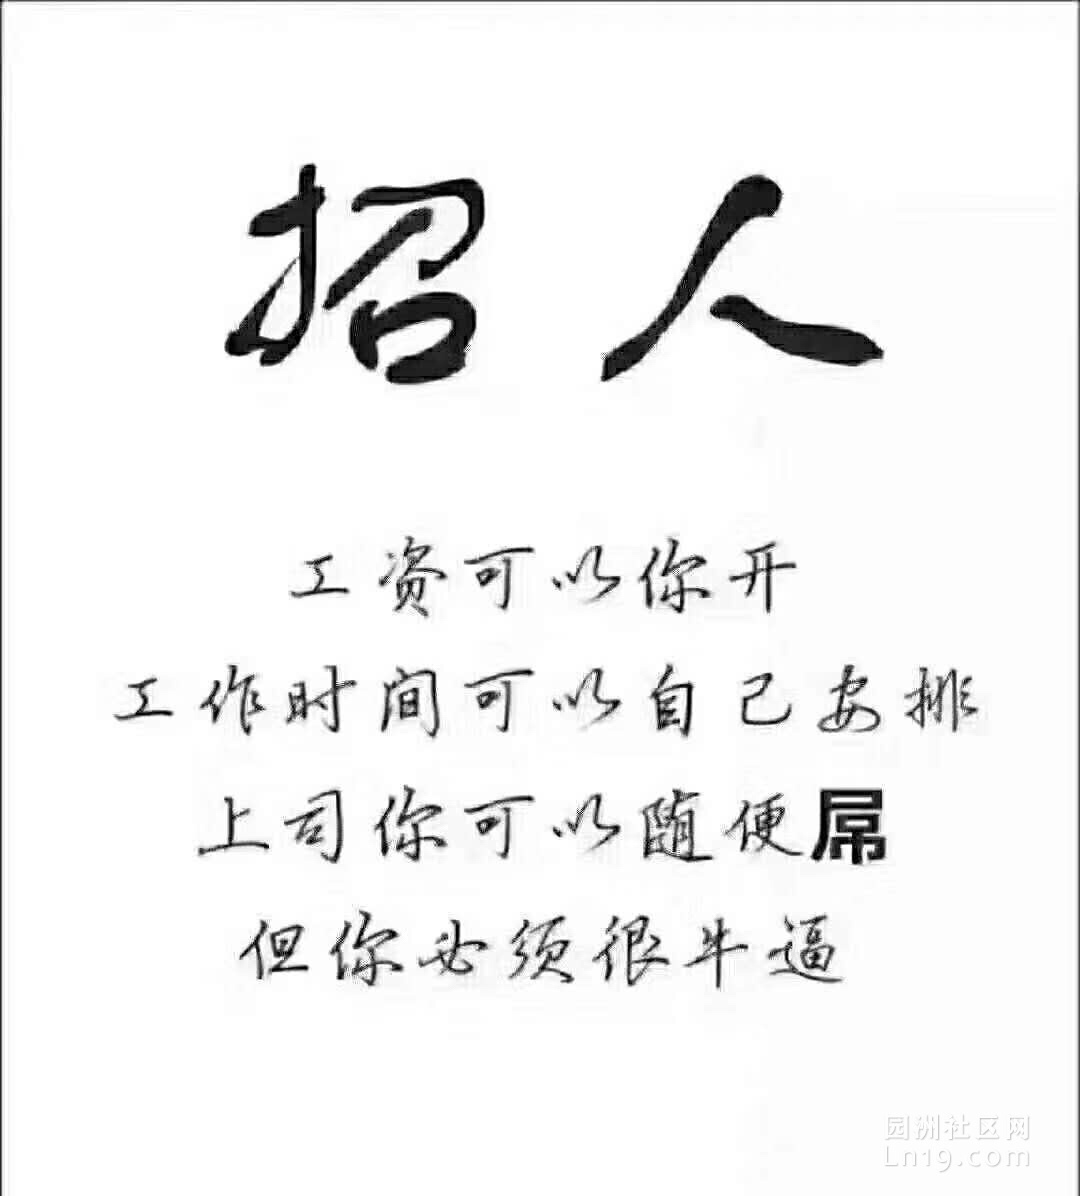 招人
工资可以你开
工作时间可以自己安排
上司你可以随便屌
但你必须很牛逼
园洲社区网
Ln19.com